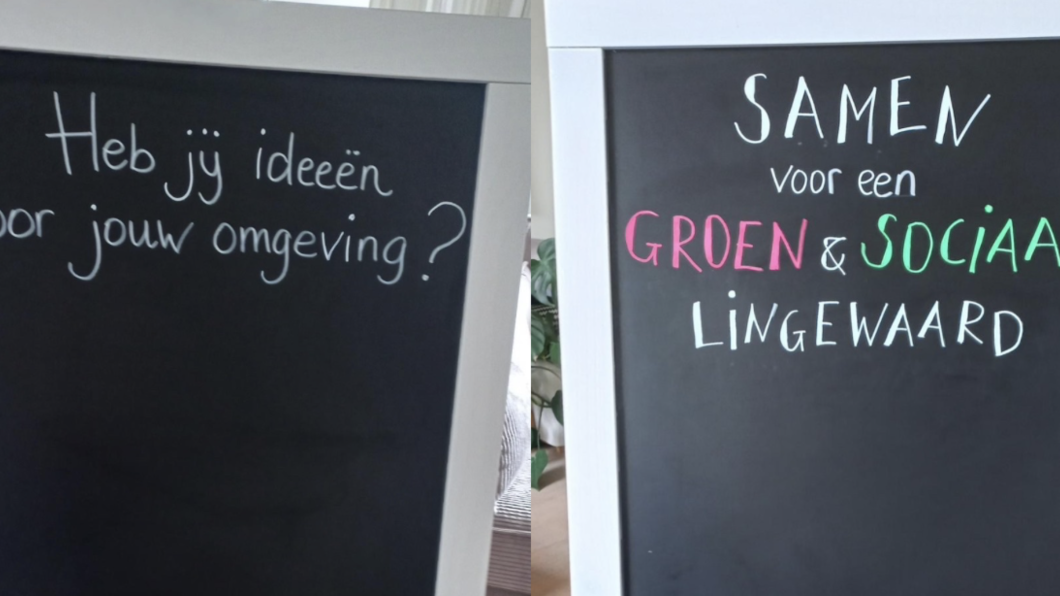 Heb jij ideeën
oor jouw omgeving?
SAMEN
voor een
GROEN & SOCIAA
LINGEWAARD